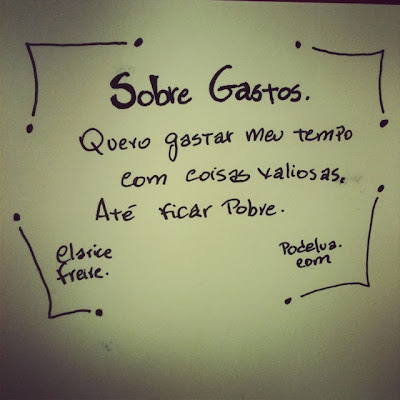 Sobre Gastos.
Quero gastar meu tempo
com coisas valiosas.
Até ficar Pobre.
Clarice
freire.
Podelua.
com